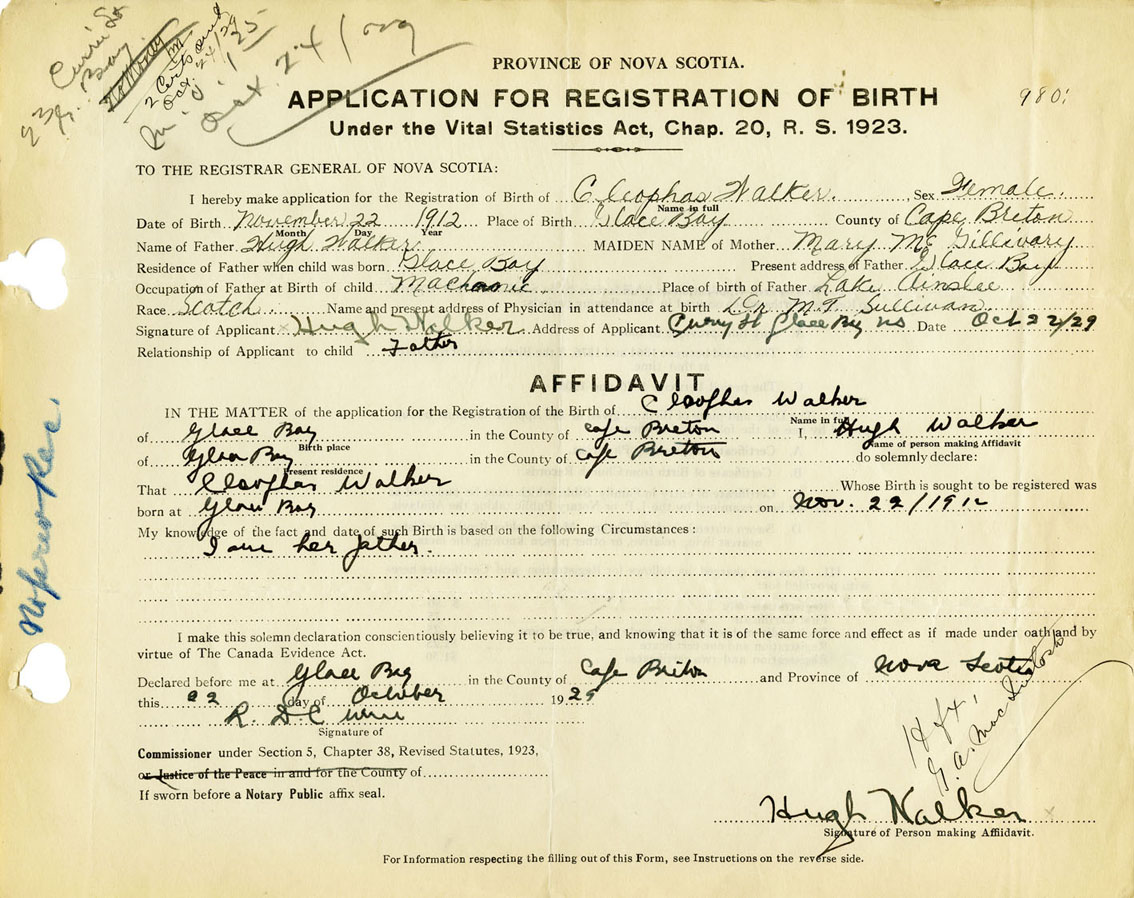 23 Currie St
Gl. Bay
No Money
2 Certs and
Oct. 24/29
Oct. 24/29
PROVINCE OF NOVA SCOTIA.
APPLICATION FOR REGISTRATION OF BIRTH
9801
Under the Vital Statistics Act, Chap. 20, R. S. 1923.
TO THE REGISTRAR GENERAL OF NOVA SCOTIA:
I hereby make application for the Registration of Birth of Cleophas Walker. Sex Female.
Name in full
Date of Birth November 22 1912 Place of Birth Glace Bay County of Cape Breton
Month Day Year
Name of Father Hugh Walker MAIDEN NAME of Mother Mary Mc Gillivary
Residence of Father when child was born Glace Bay Present address of Father Glace Bay
Occupation of Father at Birth of child Machanic Place of birth of Father Lake Ainslee
Race Scotch Name and present address of Physician in attendance at birth Dr. M.T. Sullivan
Signature of Applicant x Hugh Walker Address of Applicant Curry St Glace Bay NS Date Oct 22/29
Relationship of Applicant to child Father
AFFIDAVIT
IN THE MATTER of the application for the Registration of the Birth of Cleophas Walker
Name in full
of Glace Bay in the County of Cape Breton I, Hugh Walker
Birth place Name of person making Affidavit
of Glace Bay in the County of Cape Breton do solemnly declare:
Present residence
That Cleophas Walker Whose Birth is sought to be registered was
born at Glace Bay on Nov. 22/1912
My knowledge of the fact and date of such Birth is based on the following Circumstances:
I am her father.
I make this solemn declaration conscientiously believing it to be true, and knowing that it is of the same force and effect as if made under oath and by
virtue of The Canada Evidence Act.
Declared before me at Glace Bay in the County of Cape Breton and Province of Nova Scotia
this 22 day of October 1929
Signature of
Commissioner under Section 5, Chapter 38, Revised Statutes, 1923,
or Justice of the Peace in and for the County of
If sworn before a Notary Public affix seal.
G. A. MacIntosh
Hugh Walker x
Signature of Person making Affidavit.
For Information respecting the filling out of this Form, see Instructions on the reverse side.